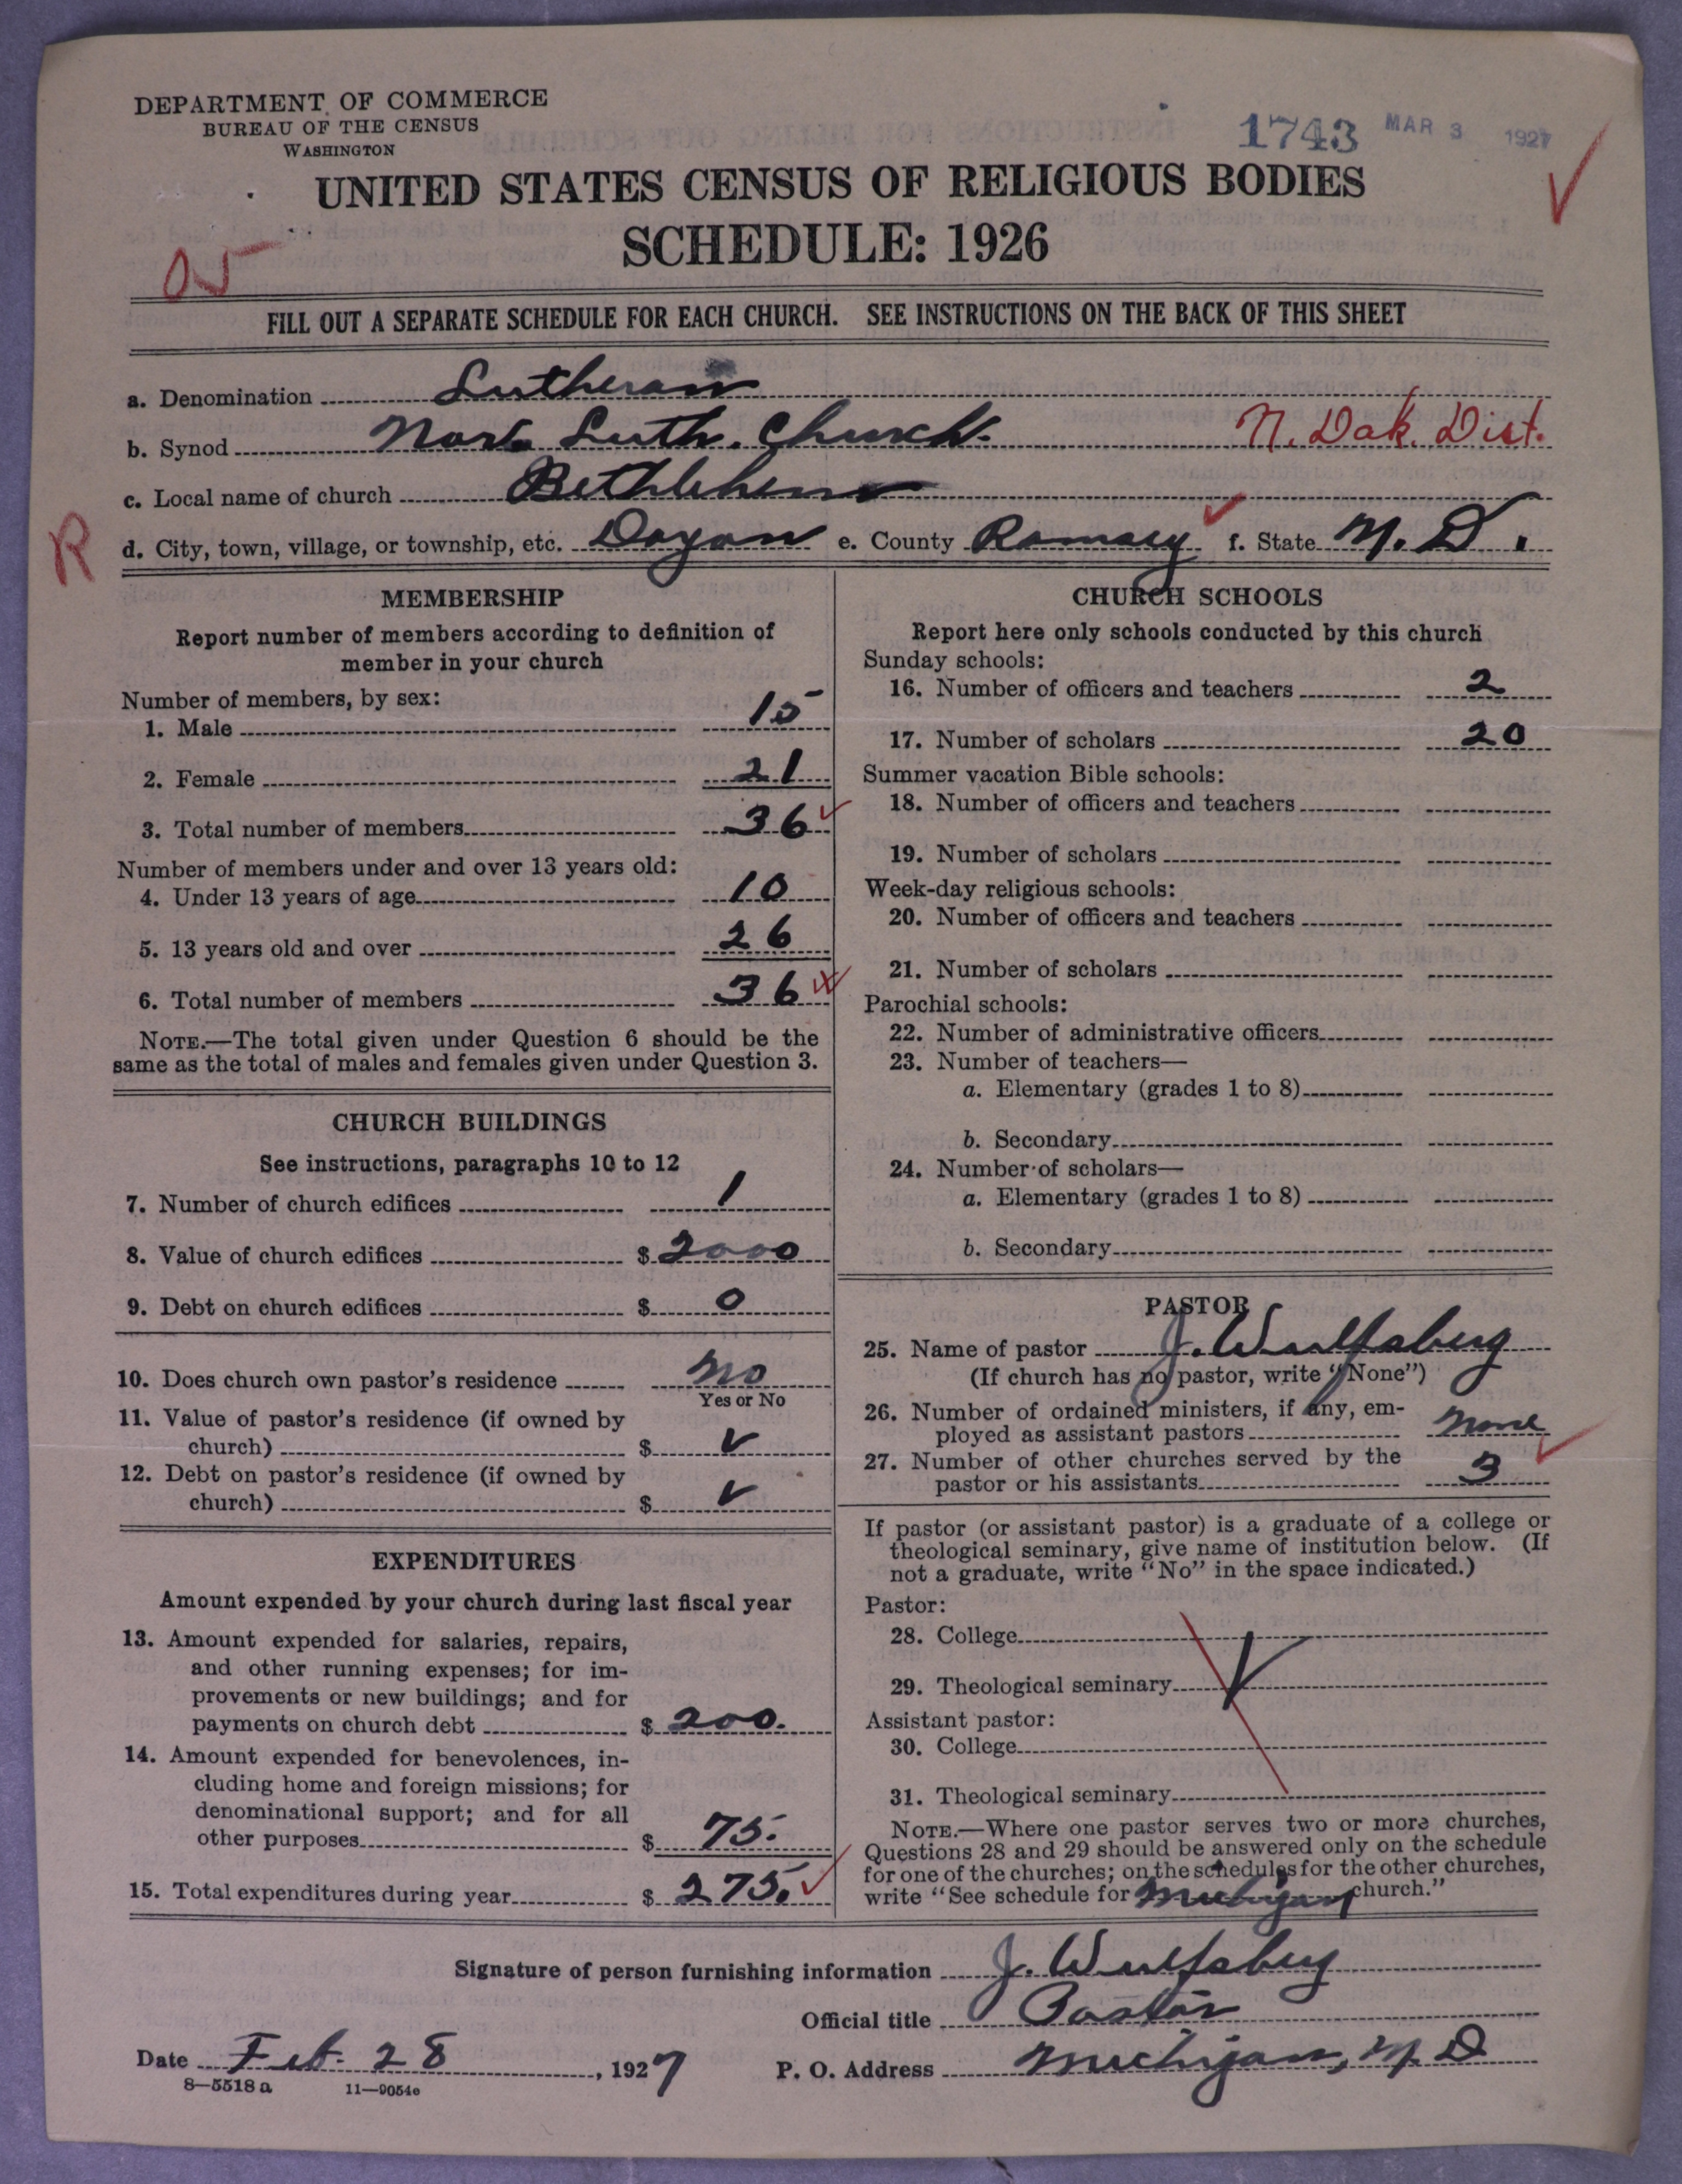 DEPARTMENT OF COMMERCE
BUREAU OF THE CENSUS
WASHINGTON
1743 MAR 3 1927
UNITED STATES CENSUS OF RELIGIOUS BODIES
SCHEDULE: 1926
05
FILL OUT A SEPARATE SCHEDULE FOR EACH CHURCH. SEE INSTRUCTIONS ON THE BACK OF THIS SHEET
a. Denomination Lutheran
b. Synod Norw. Luth. Church. N. Dak. Dist.
c. Local name of church Bethlehem
R
d. City, town, village, or township, etc. Doyon e. County Ramsey f. State N. D.
MEMBERSHIP
Report number of members according to definition of
member in your church
Number of members, by sex:
1. Male 15
2. Female 21
3. Total number of members 36
Number of members under and over 13 years old:
4. Under 13 years of age 10
5. 13 years old and over 26
6. Total number of members 36
NOTE.—The total given under Question 6 should be the
same as the total of males and females given under Question 3.
CHURCH BUILDINGS
See instructions, paragraphs 10 to 12
7. Number of church edifices 1
8. Value of church edifices $ 2000
9. Debt on church edifices $ 0
10. Does church own pastor's residence no
Yes or No
11. Value of pastor's residence (if owned by
church) $
12. Debt on pastor's residence (if owned by
church) $
EXPENDITURES
Amount expended by your church during last fiscal year
13. Amount expended for salaries, repairs,
and other running expenses; for im-
provements or new buildings; and for
payments on church debt $ 200.
14. Amount expended for benevolences, in-
cluding home and foreign missions; for
denominational support; and for all
other purposes $ 75.
15. Total expenditures during year $ 275.
CHURCH SCHOOLS
Report here only schools conducted by this church
Sunday schools:
16. Number of officers and teachers 2
17. Number of scholars 20
Summer vacation Bible schools:
18. Number of officers and teachers
19. Number of scholars
Week-day religious schools:
20. Number of officers and teachers
21. Number of scholars
Parochial schools:
22. Number of administrative officers
23. Number of teachers—
a. Elementary (grades 1 to 8)
b. Secondary
24. Number of scholars—
a. Elementary (grades 1 to 8)
b. Secondary
PASTOR
25. Name of pastor J. Wulfsberg
(If church has no pastor, write "None")
26. Number of ordained ministers, if any, em-
ployed as assistant pastors none
27. Number of other churches served by the
pastor or his assistants 3
If pastor (or assistant pastor) is a graduate of a college or
theological seminary, give name of institution below. (If
not a graduate, write "No" in the space indicated.)
Pastor:
28. College
29. Theological seminary
Assistant pastor:
30. College
31. Theological seminary
NOTE.—Where one pastor serves two or more churches,
Questions 28 and 29 should be answered only on the schedule
for one of the churches; on the schedules for the other churches,
write "See schedule for Michigan church."
Signature of person furnishing information J. Wulfsberg
Official title Pastor
Date Feb. 28, 1927 P. O. Address Michigan, N. D
8—5518 a 11—9054e